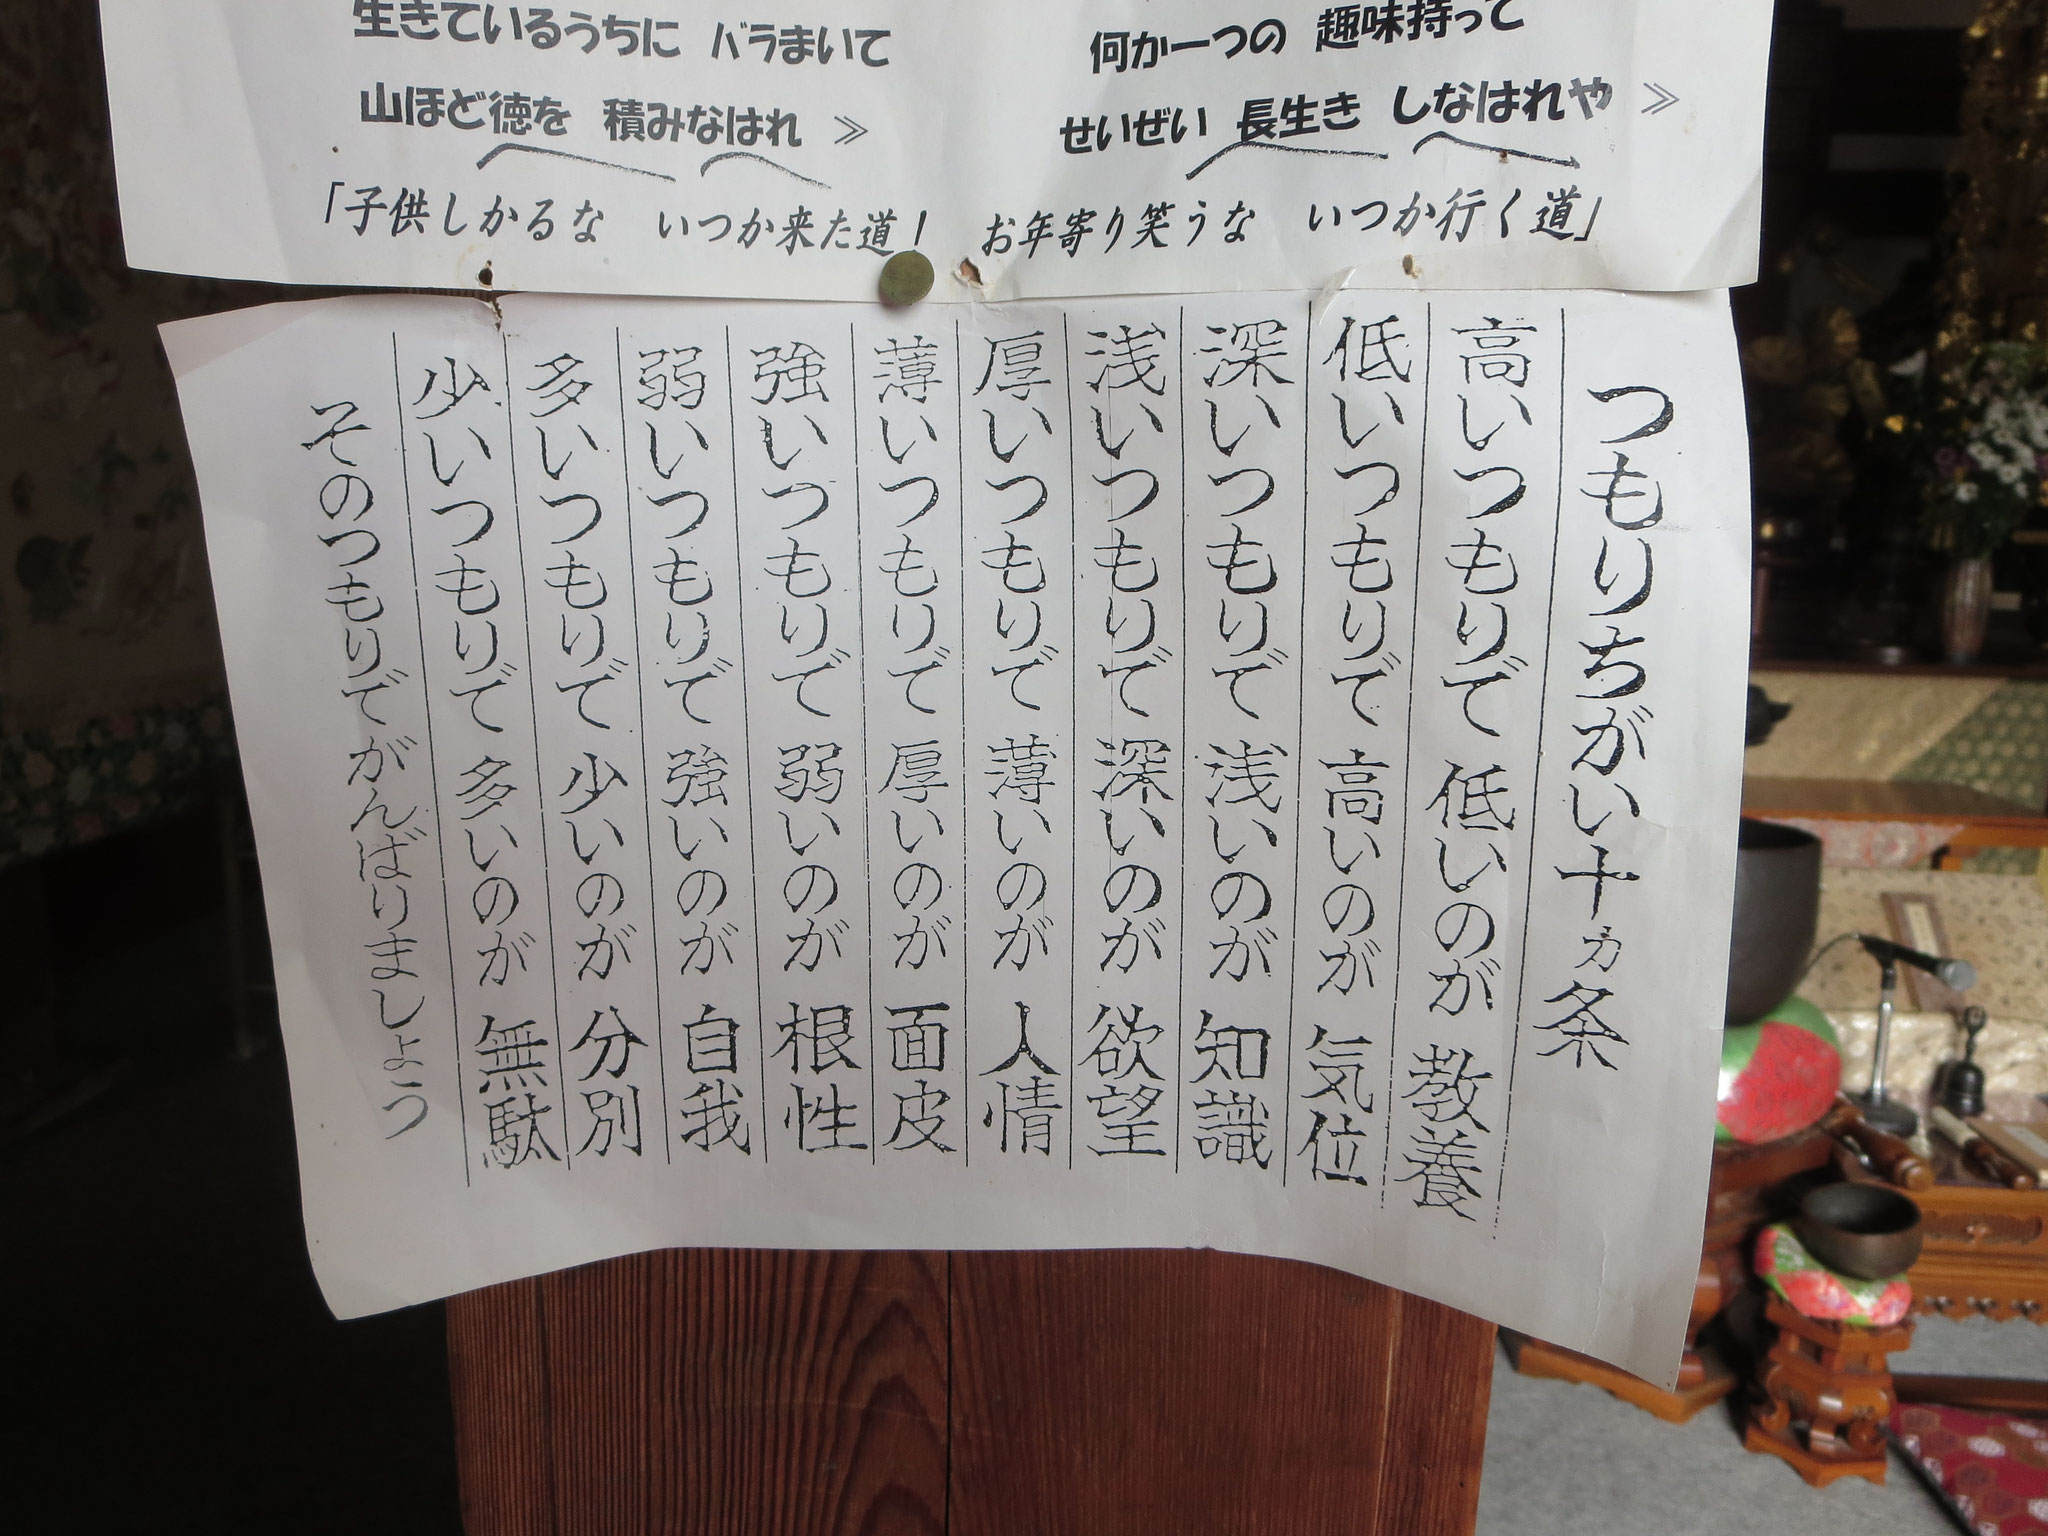 生きているうちに バラまいて
山ほど徳を 積みなはれ ≫
何か一つの 趣味持って
せいぜい 長生き しなはれや ≫
「子供しかるな いつか来た道！ お年寄り笑うな いつか行く道」
つもりちがい十ヵ条
高いつもりで 低いのが 教養
低いつもりで 高いのが 気位
深いつもりで 浅いのが 知識
浅いつもりで 深いのが 欲望
厚いつもりで 薄いのが 人情
薄いつもりで 厚いのが 面皮
強いつもりで 弱いのが 根性
弱いつもりで 強いのが 自我
多いつもりで 少いのが 分別
少いつもりで 多いのが 無駄
そのつもりで がんばりましょう